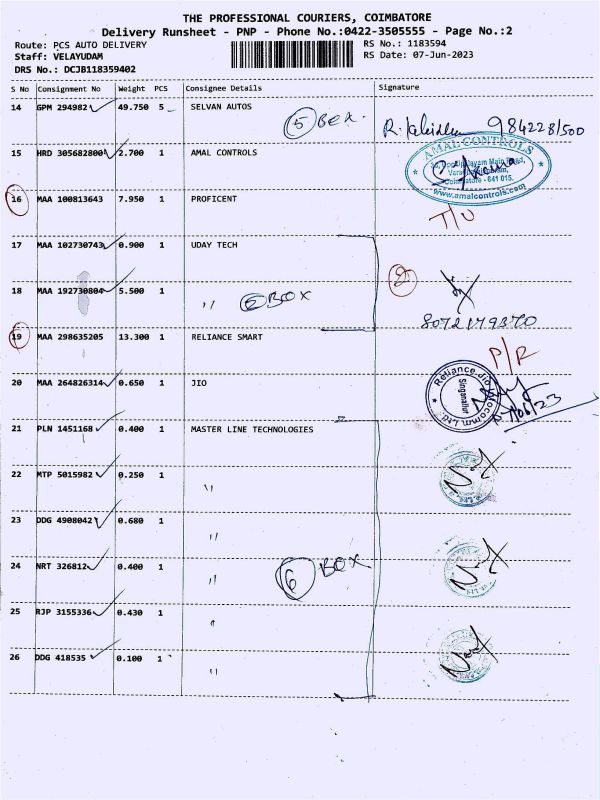 THE PROFESSIONAL COURIERS, COIMBATORE
Delivery Runsheet - PNP - Phone No.:0422-3505555 - Page No.:2
Route: PCS AUTO DELIVERY RS No.: 1183594
Staff: VELAYUDAM RS Date: 07-Jun-2023
DRS No.: DCJB118359402
S No Consignment No Weight PCS Consignee Details Signature
14 GPM 294982 49.750 5 SELVAN AUTOS
5 BOX
15 HRD 305682800 2.700 1 AMAL CONTROLS
AMAL CONTROLS
Coimbatore - 641 015.
www.amalcontrols.com
16 MAA 100813643 7.950 1 PROFICENT
T/U
17 MAA 102730743 0.900 1 UDAY TECH
18 MAA 192730804 5.500 1 〃 BOX
8072179370
19 MAA 298635205 13.300 1 RELIANCE SMART
P/R
20 MAA 264826314 0.650 1 JIO
Singanallur
21 PLN 1451168 0.400 1 MASTER LINE TECHNOLOGIES
22 MTP 5015982 0.250 1 〃
23 DDG 4908042 0.680 1 〃
24 NRT 326812 0.400 1 〃
6 BOX
25 RJP 3155336 0.430 1 〃
26 DDG 418535 0.100 1 〃